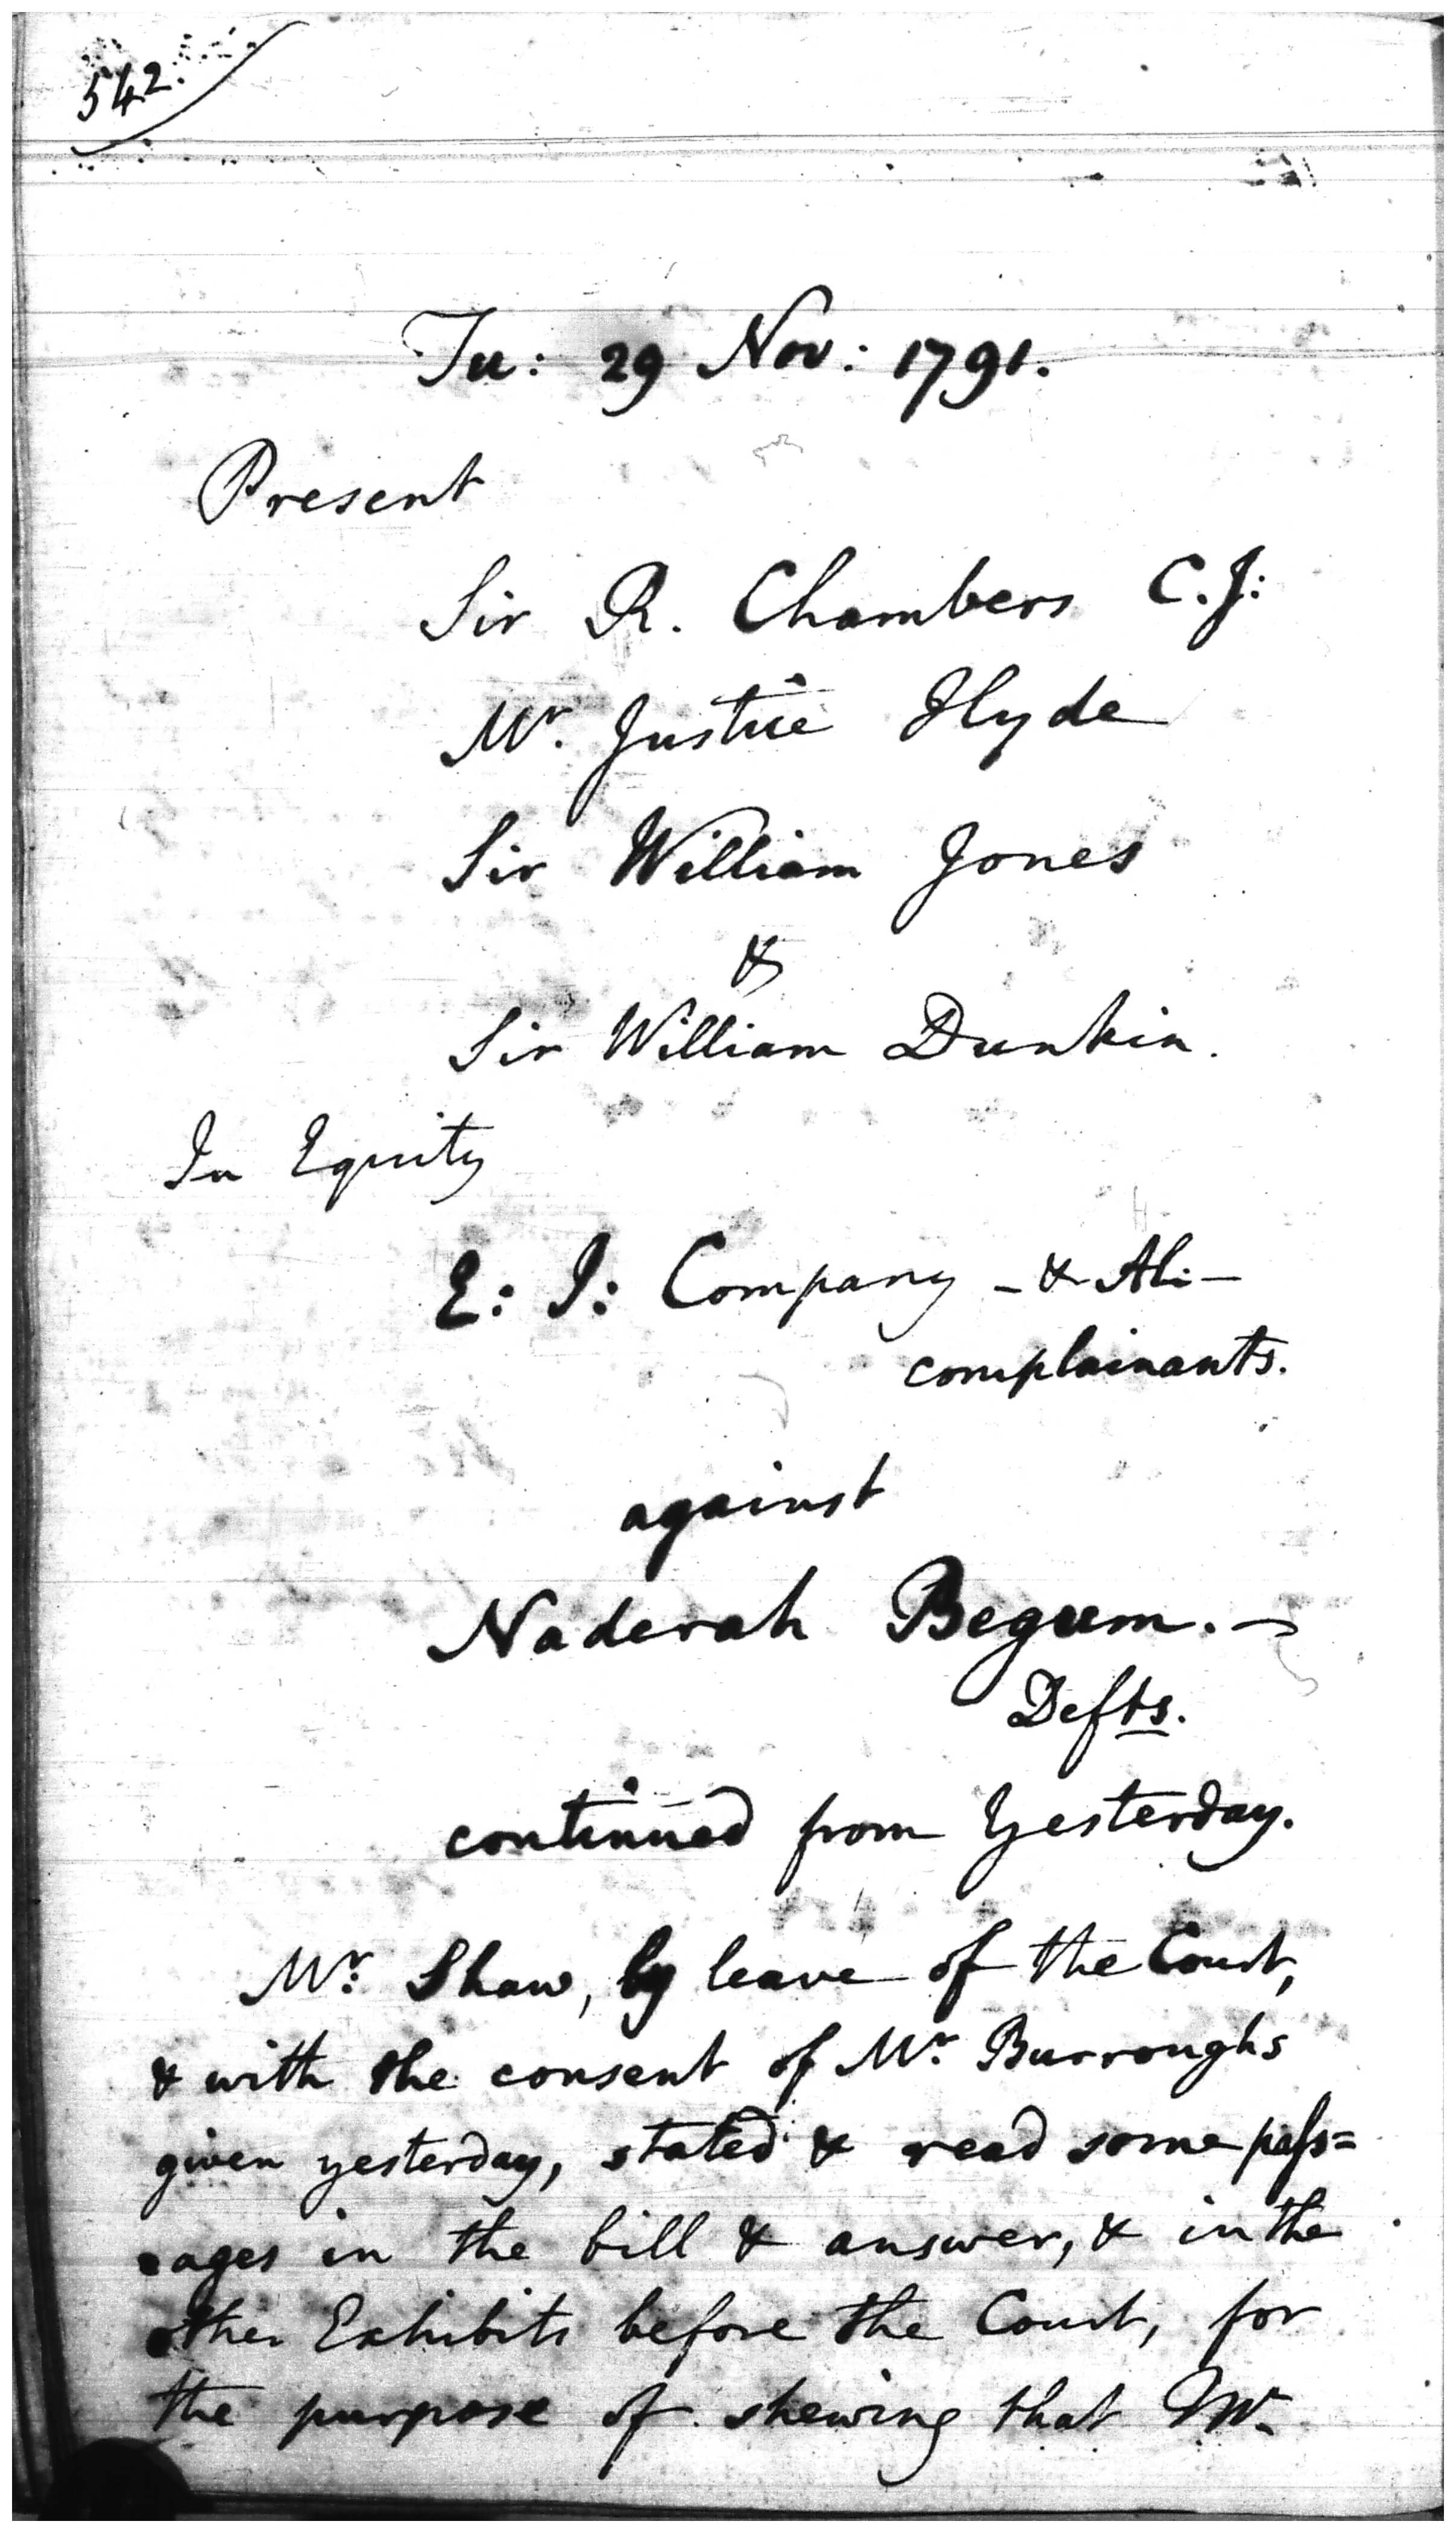 542.
Tu: 29 Nov: 1791.
Present
Sir R. Chambers C.J:
Mr. Justice Hyde
Sir William Jones
&
Sir William Dunkin.
In Equity
E: I: Company - & Ali -
complainants.
against
Naderah Begum. -
Defts.
continued from Yesterday.
Mr. Shaw, by leave of the Court,
& with the consent of Mr. Burroughs
given yesterday, stated & read some pass=
ages in the bill & answer, & in the
other Exhibits before the Court, for
the purpose of shewing that Mr.